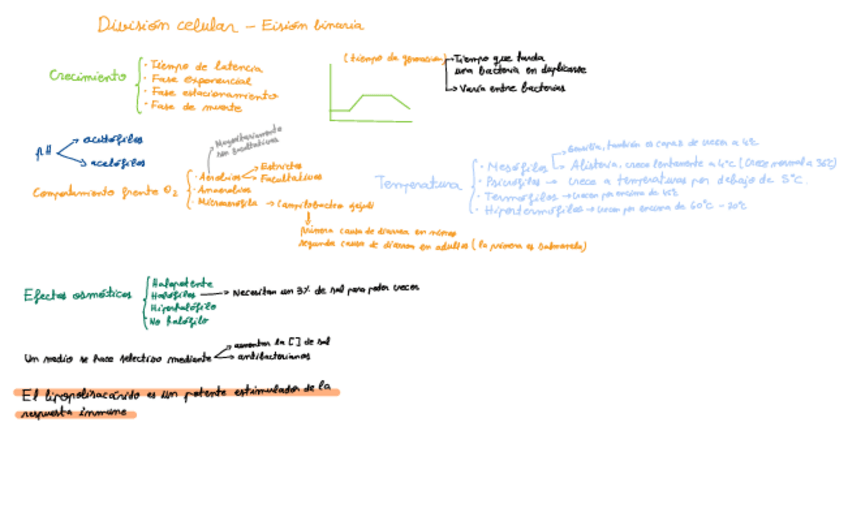 División celular - Fisión binaria
Crecimiento
· Tiempo de latencia
· Fase exponencial
· Fase estacionamiento
· Fase de muerte
(tiempo de generación)
Tiempo que tarda
una bacteria en duplicarse
Varía entre bacterias
pH
acidófilos
Mayoritariamente
son facultativas
Comportamiento frente O₂
· Aerobios
Estrictos
Facultativos
· Anaerobios
· Microaerófila → Campilobacter yeyuli
primera causa de diarrea en
segunda causa de diarrea en adultos (la primera es salmonela)
Temperatura
también es capaz de crecer a 4ºC
· Mesófilos
crece lentamente a 4ºC (Crece normal a 36ºC)
· Psicrófilos → crece a temperaturas por debajo de 5ºC.
· Termófilos → crecen por encima de 45ºC
· Hipertermófilos → crecen por encima de 60ºC - 70ºC
Efectos osmóticos
Halotolerante
Halófilos → Necesitan un 3% de sal para poder crecer
Hiperhalófilo
No halófilo
Un medio se hace selectivo mediante
aumentar la [] de sal
antibacterianos
El lipopolisacárido es un potente estimulador de la
respuesta immune